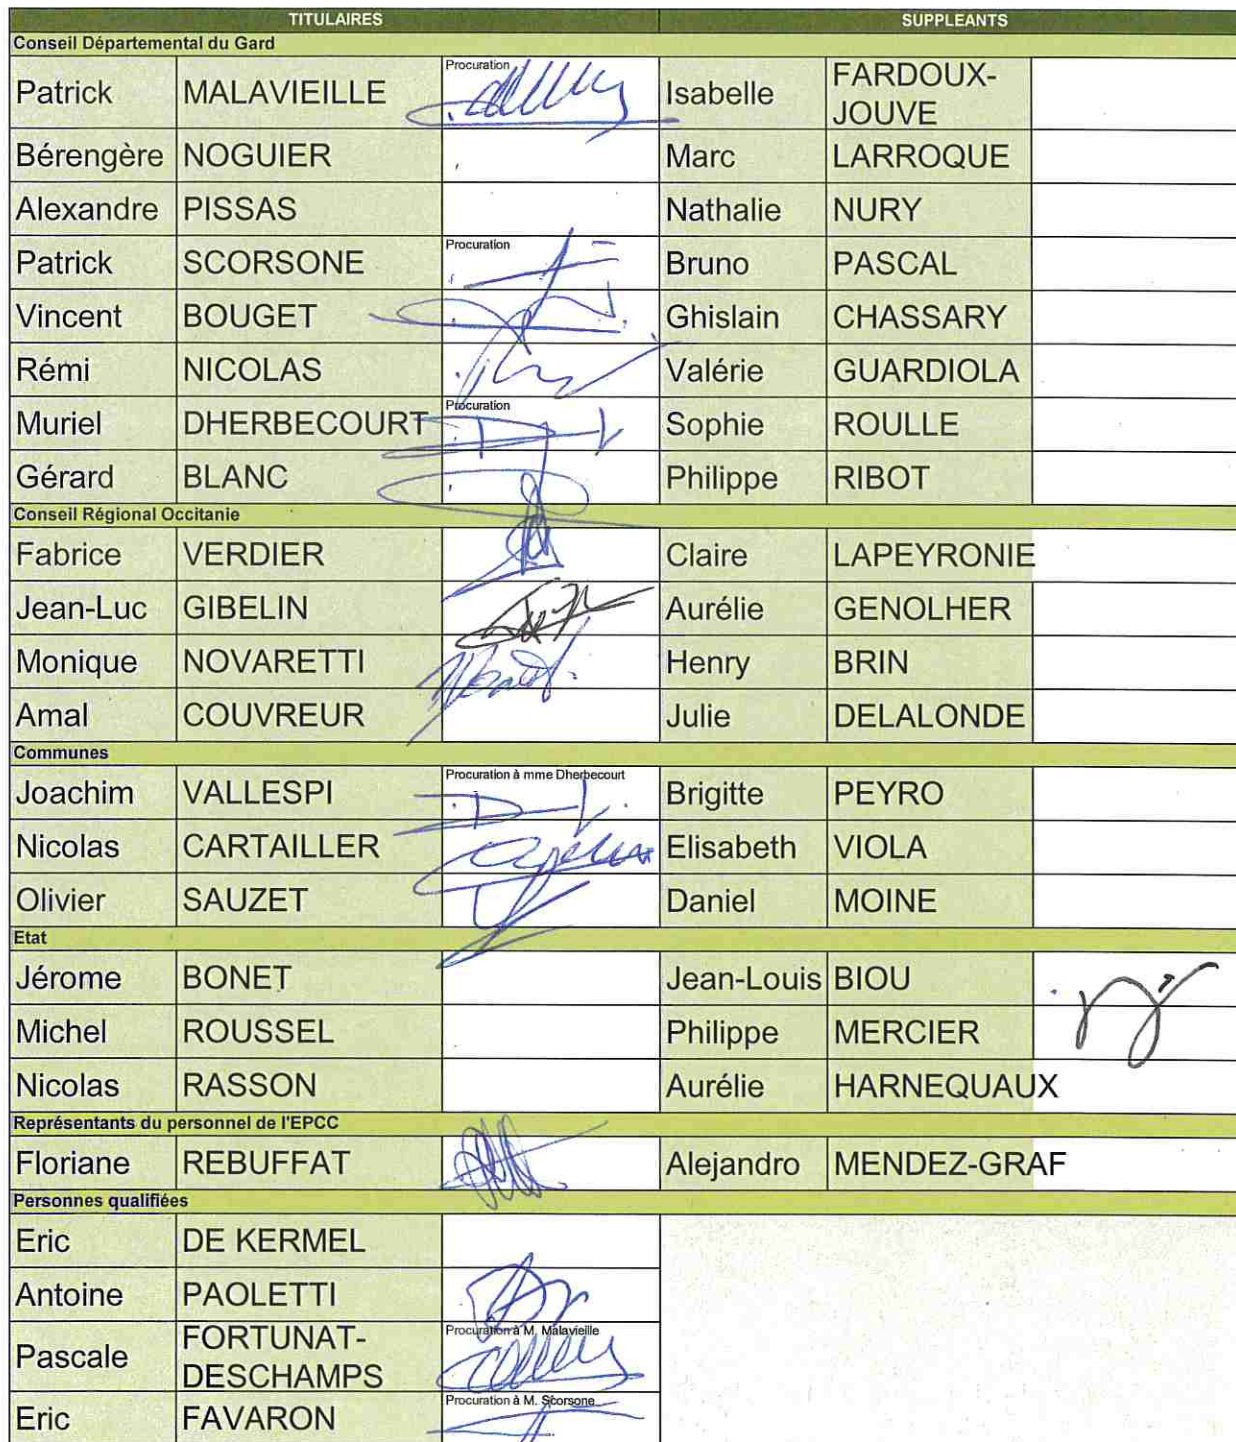 TITULAIRES SUPPLEANTS
Conseil Départemental du Gard
Patrick MALAVIEILLE Procuration Isabelle FARDOUX-JOUVE
Bérengère NOGUIER Marc LARROQUE
Alexandre PISSAS Nathalie NURY
Patrick SCORSONE Procuration Bruno PASCAL
Vincent BOUGET Ghislain CHASSARY
Rémi NICOLAS Valérie GUARDIOLA
Muriel DHERBECOURT Procuration Sophie ROULLE
Gérard BLANC Philippe RIBOT
Conseil Régional Occitanie
Fabrice VERDIER Claire LAPEYRONIE
Jean-Luc GIBELIN Aurélie GENOLHER
Monique NOVARETTI Henry BRIN
Amal COUVREUR Julie DELALONDE
Communes
Joachim VALLESPI Procuration à mme Dherbecourt Brigitte PEYRO
Nicolas CARTAILLER Elisabeth VIOLA
Olivier SAUZET Daniel MOINE
Etat
Jérome BONET Jean-Louis BIOU
Michel ROUSSEL Philippe MERCIER
Nicolas RASSON Aurélie HARNEQUAUX
Représentants du personnel de l'EPCC
Floriane REBUFFAT Alejandro MENDEZ-GRAF
Personnes qualifiées
Eric DE KERMEL
Antoine PAOLETTI
Pascale FORTUNAT-DESCHAMPS Procuration à M. Malavieille
Eric FAVARON Procuration à M. Scorsone